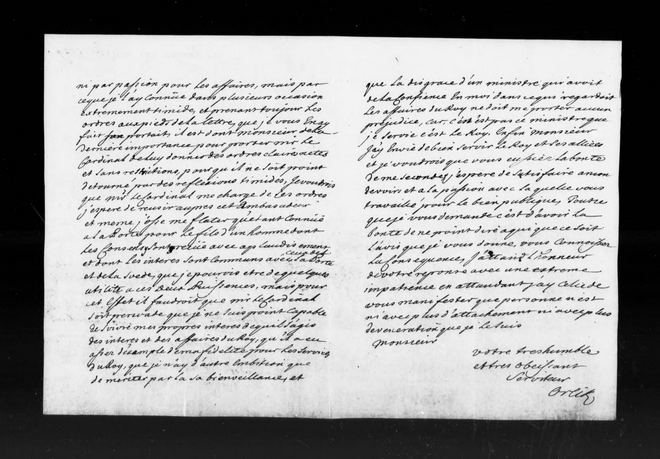 ni par passion pour les affaires, mais par
ceque je l'ay Connüe dans plusieurs occasion
extremement timide, et prenant toujour Les
ordres aupied de la lettre, que je vous En ay
fait son portait, il est donc monsieur dela
derniere importance pour porter mr Le
Cardinal de luy donner des ordres claire nettes
et sans restrictions, pour qu'il ne soit point
detourné par des reflexions timides, Je voudrois
que mr le Cardinal me charge de ses ordres
j'espere de reussir aupres cet Ambassadeur
et meme j'ose me flater qu'etant Connüe
a la Porte pour le fils d'un homme dont
Les Conseils ont eté avec aplaudissement
et dont les interes sont Communs avec ceux de la Porte
et de la Suede, que je pourois etre de quelque
utilité a ces deux Puissences, mais pour
cet Effet il faudroit que mr le Cardinal
soit persuadé que je ne suis point capable
de suivre mes propres interes dequ'il s'agis
des interes et des affaires du Roy, qu'il a eu
assez d'example de ma fidelité pour Les Service
du Roy, que je n'ay d'autre Embition que
de meriter par la sa bienveillance, et
que la disgrace d'un ministre qui avoit
de la Confience En moi dans ce qui regardoit
Les affaires du Roy ne doit me porter aucun
prejudice, car, c'est pas ce ministre que
j'e servie c'est le Roy. Enfin Monsieur
J'ay Envie de bien servir le Roy et ses alliées
et je voudrois que vous eussiez la bonté
de me secondez, j'espere de satisfaire a mon
devoir et a la passion avec la quelle vous
travaillés pour le bien publique, Toutre
que je vous demande c'est d'avoir la
bonté de ne point dire a qui que ce soit
L'avis que je vous donne, vous Connoissez
Le Consequences, J'attand L'honneur
de votre reponse avec une extreme
impatience en attendant j'ay Celui de
vous manifester que personne n'est
ni avec plus d'attachement ni avec plus
de veneration que je le suis
Monsieur
votre tres humble
et tres obeissant
Serviteur
Orlik